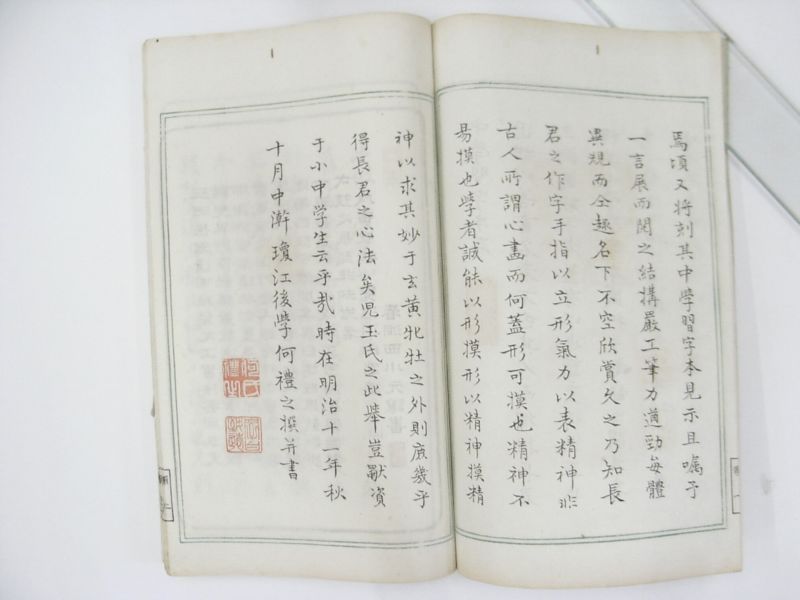 焉頃又將刻其中學習字本見示且嘱予
一言展而閱之結搆嚴工筆力遒勁每體
異規而仝趣名下不空欣賞久之乃知長
君之作字手指以立形氣力以表精神非
古人所謂心畫而何蓋形可摸也精神不
易摸也學者誠能以形摸形以精神摸精
神以求其妙于玄黃牝牡之外則庶幾乎
得長君之心法矣児玉氏之此舉豈獣資
于小中学生云乎哉時在明治十一年秋
十月中澣瓊江後學何禮之撰并書